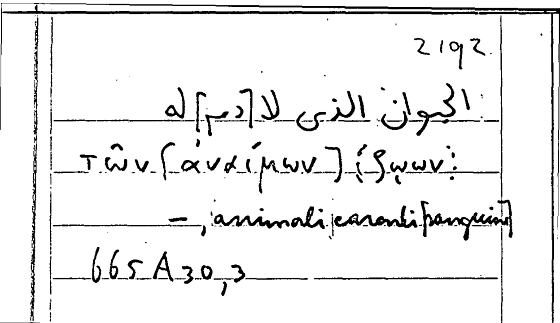 2192
الحيوان الذى لا [دم] له
τῶν [ἀναίμων] ζῴων:
—, animali carenti [sanguine]
665 A 30,3